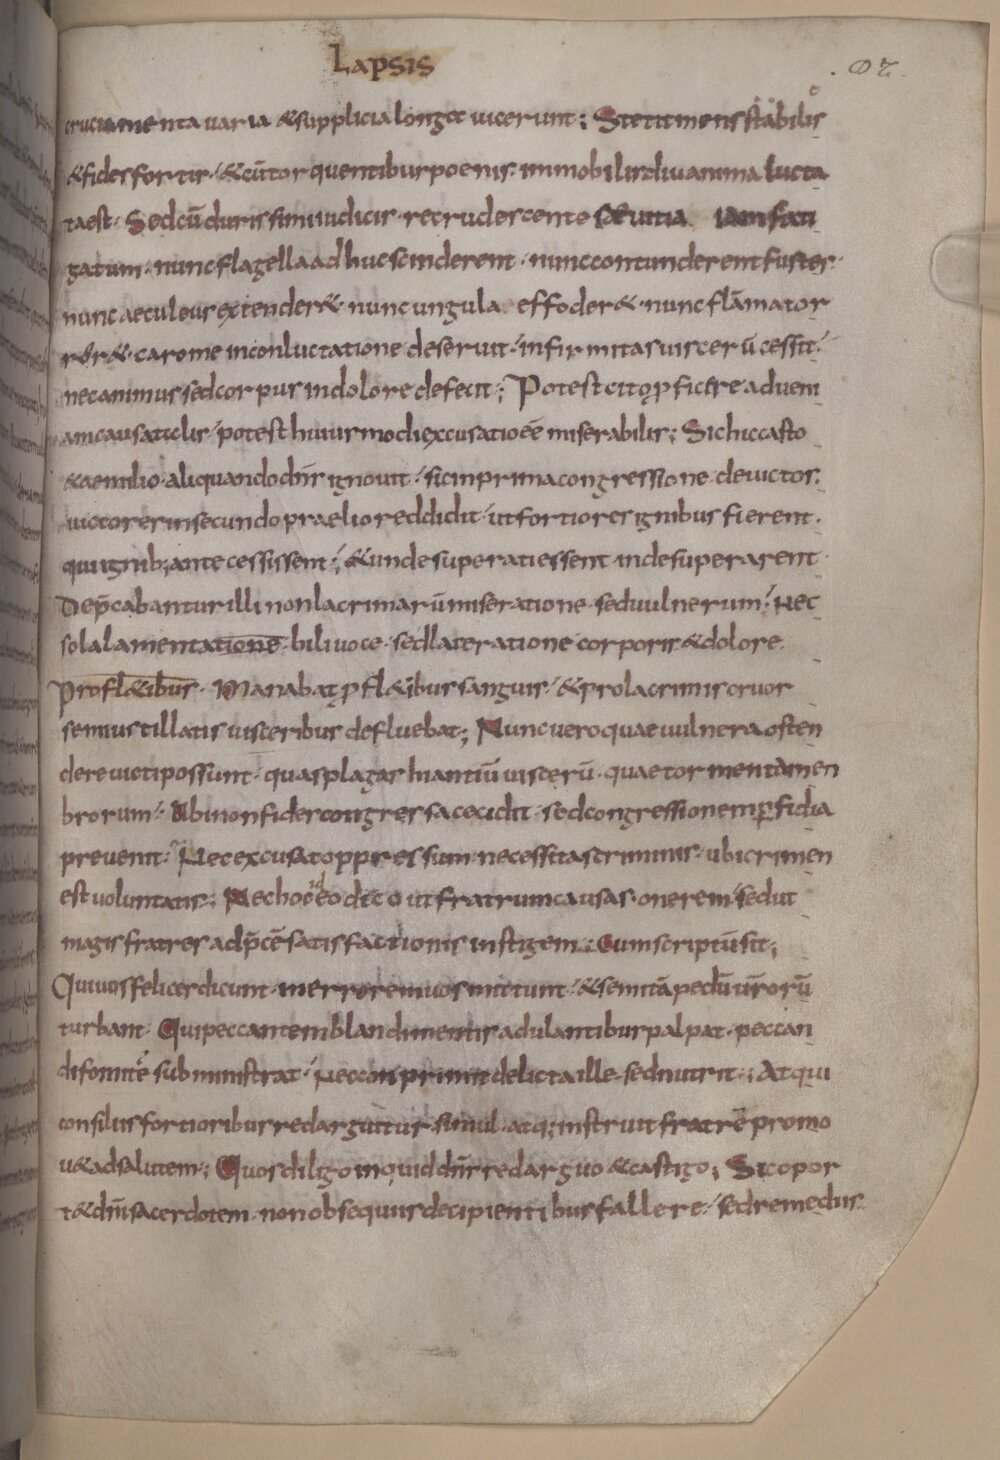 Lapsis
. 02.
cruciamenta uaria & supplicia longae uicerunt; Stetit mens stabilis
& fides fortis & cū torquentibus poenis inmobilis diu anima lucta
ta est. Sed cū durissimi iudicis recrudescente seuitia iam fati
gatum. nunc flagella adhuc scinderent. nunc contunderent fustes.
nunc aeculeus extender&. nunc ungula effoder&. nunc flāma tor
rer&. caro me in conluctatione deseruit. infirmitas uiscerū cessit.
nec animus sed corpus in dolore defecit; Potest cito ꝓficere ad ueni
am causa talis. potest huiusmodi excusatio eē miserabilis; Sic hic casto
& aemilio aliquando dn̄s ignouit. sic in prima congressione deuictos.
uictores in secundo praelio reddidit. ut fortiores ignibus fierent.
qui ignib; ante cessissent; & unde superati essent inde superarent
Dep̄cabantur illi non lacrimarū miseratione. sed uulnerum. Nec
sola lamentatione bili uoce. sed laceratione corporis & dolore.
Pro fl&ibus. Manabat ꝓ fl&ibus sanguis. & pro lacrimis cruor
semiustillatis uisceribus defluebat; Nunc uero quae uulnera osten
dere uicti possunt. quas plagas hiantiū uiscerū. quae tormenta men
brorum. Ubi non fides congressa cecidit. sed congressionem ꝑfidia
preuenit. Nec excusat oppressum necessitas criminis. ubi crimen
est uoluntatis; Nec hoc eo dico ut fratrum causas onerem sed ut
magis fratres ad p̄cē satisfactionis instigem. Cum scriptū sit;
Qui uos felices dicunt in errorem uos mittunt. & semitā pedū ūrorū
turbant. Qui peccantem blandimentis adulantibus palpat. peccan
di fomitē subministrat. Nec conprimit delicta ille sed nutrit; At qui
consiliis fortioribus redarguit ur simul atq; instruit fratrē promo
u& ad salutem; Quos diligo inquid dn̄s redarguo & castigo; Sic opor
t& dn̄i sacerdotem. non obsequiis decipientibus fallere. sed remediis